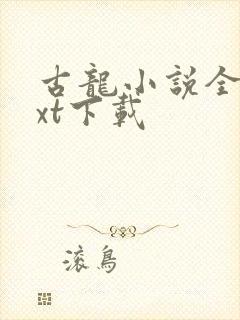 古龍小説全
xt下載
滚鳥